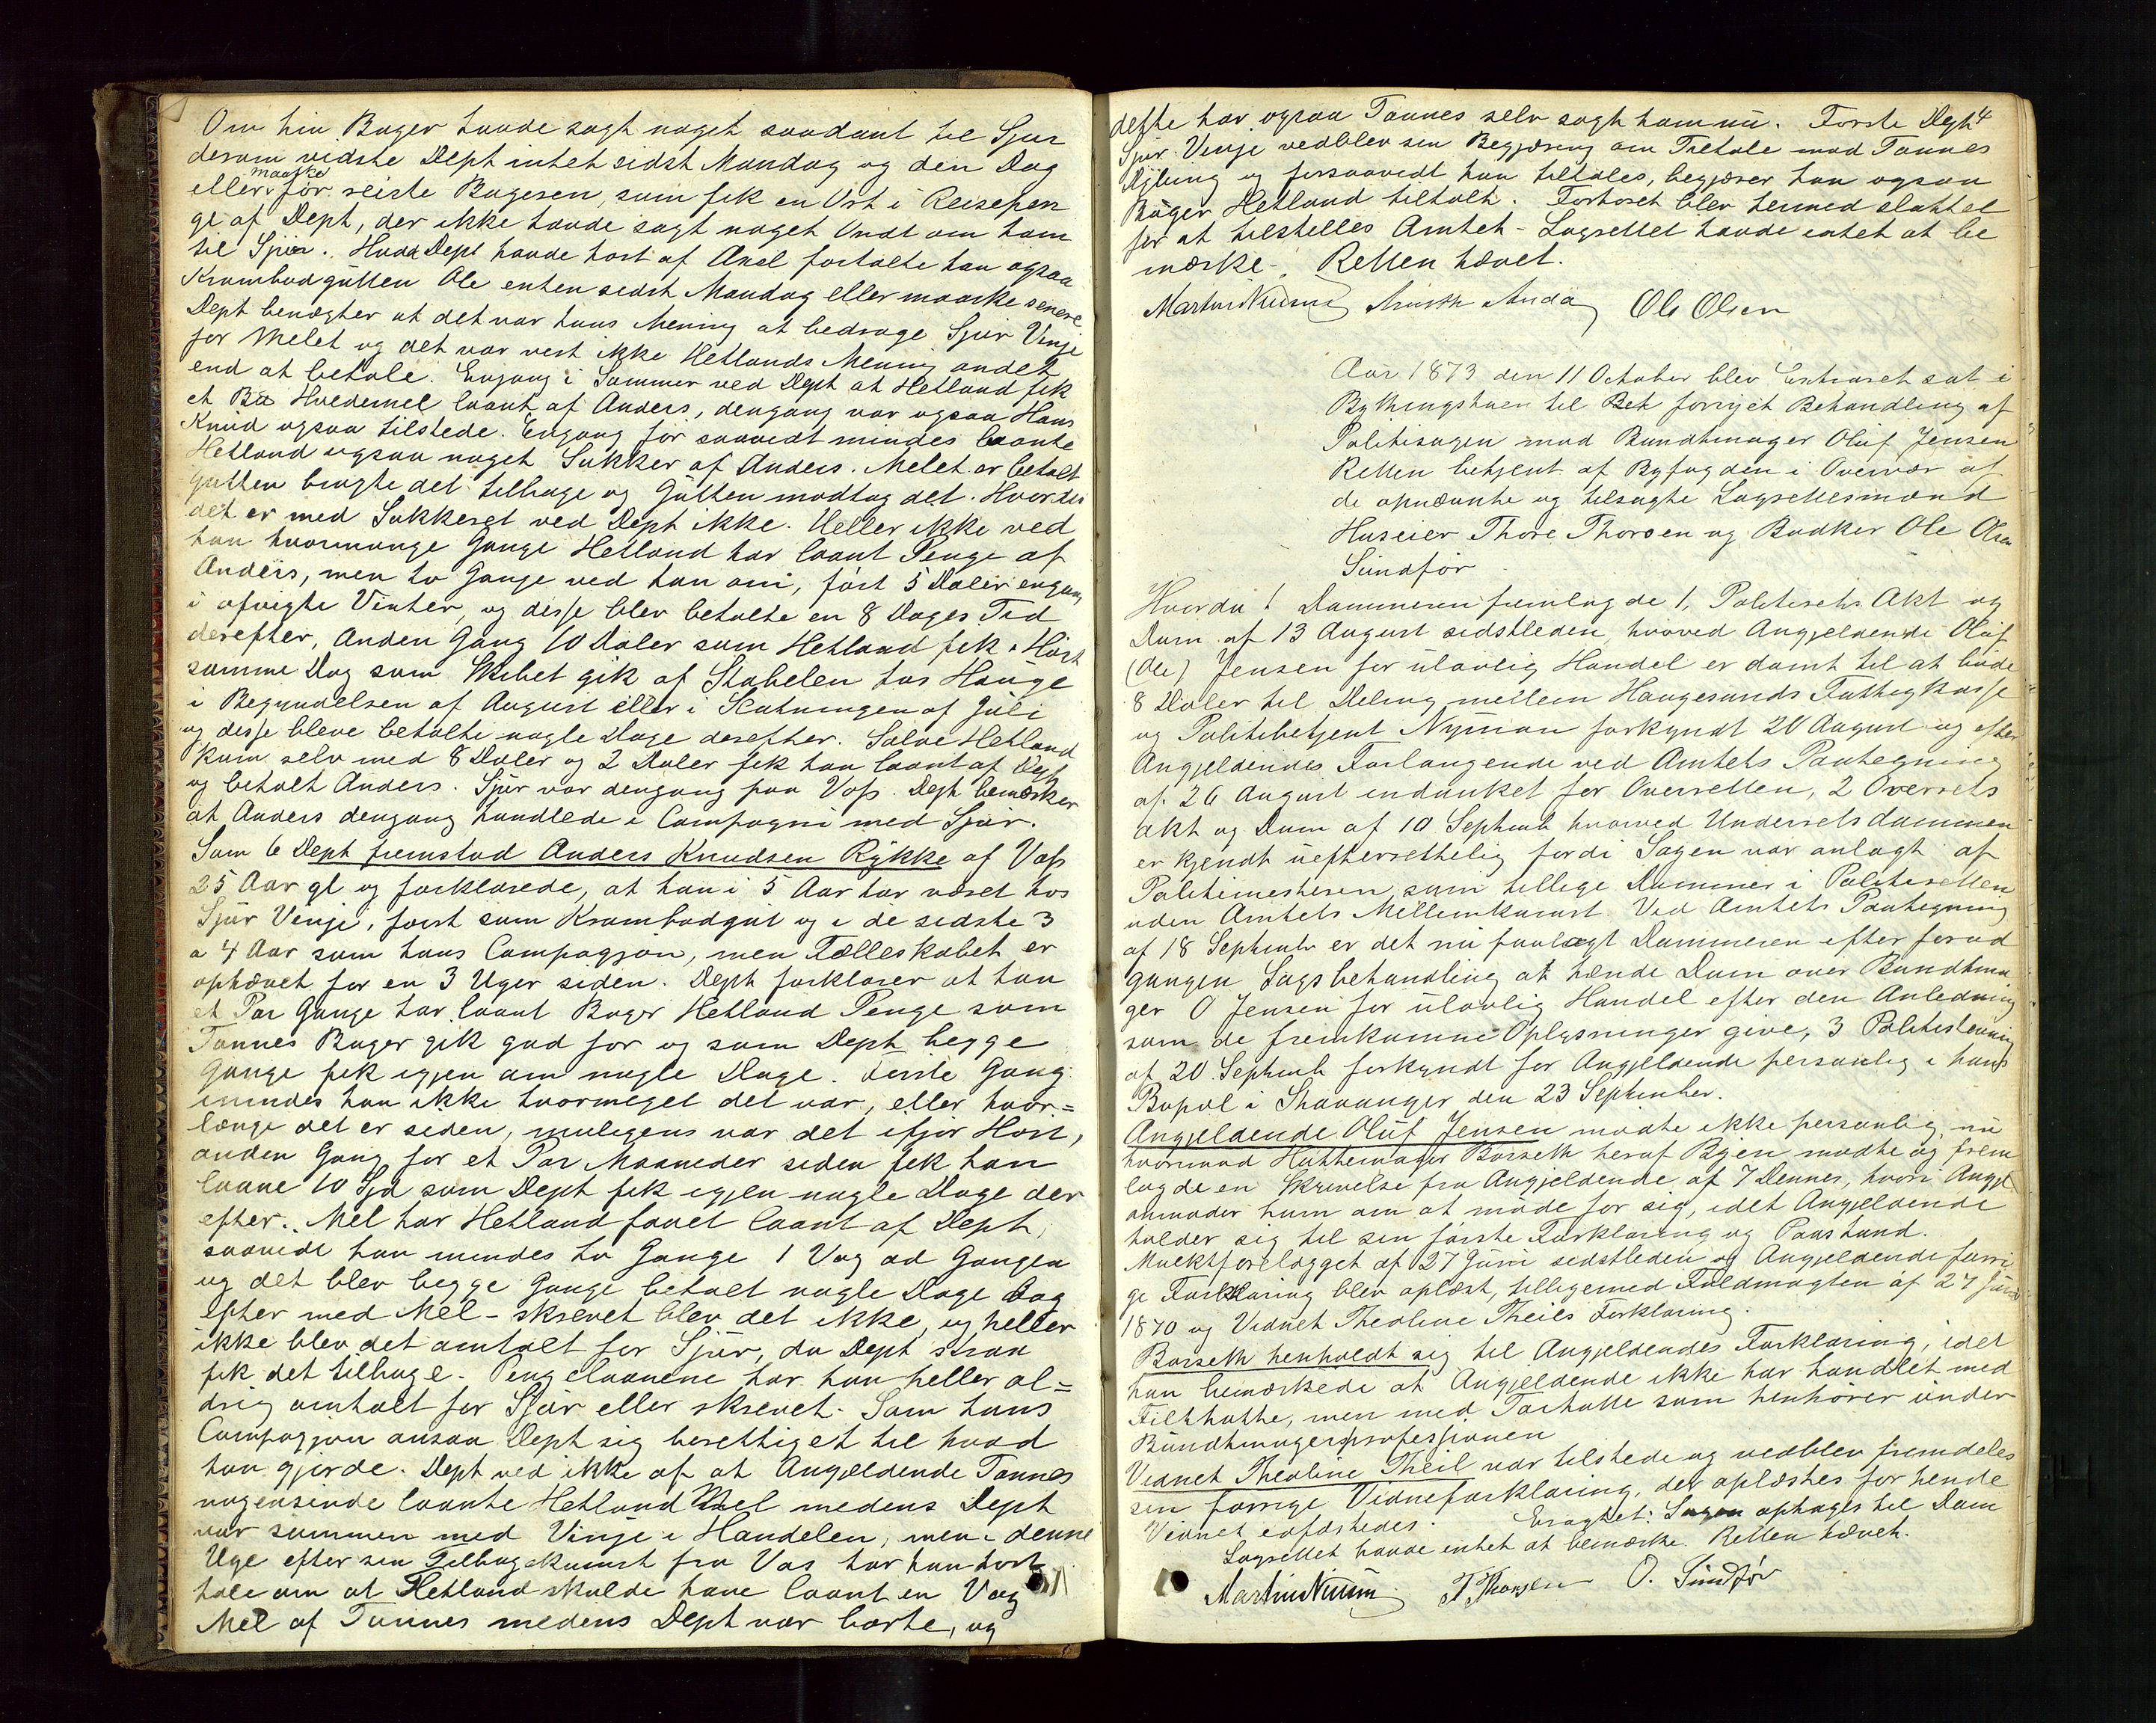 Om hin Bager havde sagt noget saadant til Sjur
derom vidste Dept intet sidst Mandag og den Dag
maaske
eller før reiste Bageren, som fik en Ort i Reisepen
ge af Dept, der ikke havde sagt noget Ondt om ham
til Sjur. Hvad Dept havde hørt af Axel fortalte han ogsaa
Krambodgutten Ole enten sidst Mandag eller maaske senere
Dept benægter at det var hans Mening at bedrage Sjur Vinje
for Melet og det var vist ikke Hetlands Mening andet
end at betale. Engang i Sommer ved Dept at Hetland fik
et Bu Hvedemel laant af Anders, dengang var ogsaa Hans
Knud ogsaa tilstede. Engang før saavidt mindes laante
Hetland ogsaa noget Sukker af Anders. Melet er betalt
Gutten bragte det tilbage og Gutten modtog det. Hvordan
det er med Sukkeret ved Dept ikke. Heller ikke ved
han hvormange Gange Hetland har laant Penge af
Anders, men to Gange ved han om, først 5 Daler engang
i afvigte Vinter, og disse blev betalte en 8 Dages Tid
derefter, Anden Gang 10 Daler som Hetland fik i Høst
samme Dag som Skibet gik af Stabelen hos Hauge
i Begyndelsen af August eller i Slutningen af Juli
og disse bleve betalte nogle Dage derefter. Salve Hetland
kom selv med 8 Daler og 2 Daler fik han laant af Dept
og betalt Anders. Sjur var dengang paa Voss. Dept bemærker
at Anders dengang handlede i Compagni med Sjur.
Som 6 Dept fremstod Anders Knudsen Rykke af Voss
25 Aar gl og forklarede, at han i 5 Aar har været hos
Sjur Venje, først som Krambodgut og i de sidste 3
a 4 Aar som hans Compagjon, men Fælleskabet er
ophævet for en 3 Uger siden. Dept forklarer at han
et Par Gange har laant Bager Hetland Penge som
Tønnes Bager gik god for og som Dept begge
Gange fik igjen om nogle Dage. Første Gang
mindes han ikke hvormeget det var, eller hvor=
længe det er siden, muligens var det ifjor Høst,
anden Gang for et Par Maaneder siden fik han
laane 10 Spd som Dept fik igjen nogle Dage der
efter. Mel har Hetland faaet laant af Dept,
saavidt han mindes to Gange 1 Vog ad Gangen
og det blev begge Gange betalt nogle Dage
efter med Mel - skrevet blev det ikke, og heller
ikke blev det omtalt for Sjur, da Dept strax
fik det tilbage. Pengelaanene har han heller al=
drig omtalt for Sjur eller skrevet. Som hans
Compagjon ansaa Dept sig berettiget til hvad
han gjorde. Dept ved ikke af at Angjeldende Tønnes
nogensinde laante Hetland Mel medens Dept
var sammen med Vinje i Handelen, men i denne
Uge efter sin Tilbagekomst fra Vos har han hørt
tale om at Hetland skulde have laant en Vog
Mel af Tønnes medens Dept var borte, og
dette har ogsaa Tønnes selv sagt ham nu. Første Dept
4
Sjur Vinje vedblev sin Begjæring om Tiltale mod Tønnes
og forsaavidt han tiltales, begjærer han ogsaa
Bager Hetland tiltalt. Forhøret blev hermed sluttet
for at tilstilles Amtet - Lagrettet havde intet at be
mærke. Retten hævet.
Martin Nissen Ola Olsen
Aar 1873 den 11 October blev Extraret sat i
Bythingstuen til Bet fornyet Behandling af
Politisagen mod Bundtmager Oluf Jensen
Retten betjent af Byfogden i Overvær af
de opnævnte og tilsagte Lagrettesmænd
Huseier Thore Thorsen og Bødker Ole Olsen
Sundfør.
Hvorda! Dommeren fremlagde 1, Politirets Akt og
Dom af 13 August sidstleden, hvorved Angjeldende Oluf
(Ole) Jensen for ulovlig Handel er dømt til at bøde
8 Daler til Deling mellem Haugesunds Fattigkasse
og Politibetjent Nyman forkyndt 20 August og efter
Angjeldendes Forlangende ved Amtets Paategning
af 26 August indanket for Overretten, 2 Overrets
Akt og Dom af 10 Septemb hvorved Underretsdommen
er kjendt uefterrettelig fordi Sagen var anlagt af
Politimesteren, som tillige Dommer i Politiretten
uden Amtets Mellemkomst. Ved Amtets Paategning
af 18 Septembr er det nu paalagt Dommeren efter forud
gangen Sagsbehandling at hænde Dom over Bundtma
ger O Jensen for ulovlig Handel efter den Anledning
som de fremkomne Oplysninger give, 3 Politistevning
af 20 Septemb forkyndt for Angjeldende personlig i hans
Bopæl i Stavanger den 23 September.
Angjeldende Oluf Jensen mødte ikke personlig, nu
hvorimod Hattemager Borseth heraf Byen mødte og frem
lagde en Skrivelse fra Angjeldende af 7 Dennes, hvori Angjel
anmoder ham om at møde for sig, idet Angjeldende
holder sig til sin første Forklaring og Paastand.
Mulktforelægget af 27 Juni sidstleden og Angjeldende forri
ge Forklaring blev oplæst, tilligemed Fuldmagten af 27 Juni
1870 og Vidnet Theoline Theils Forklaring.
Borseth henholdt sig til Angjeldendes Forklaring, idet
han bemærkede at Angjeldende ikke har handlet med
Filthatte, men med Tøihatte som henhører under
Bundtmagerprofessionen
Vidnet Theoline Theil var tilstede og vedblev fremdeles
sin forrige Vidneforklaring, der oplæstes for hende
Vidnet eedfæstedes. Eragtet: Sagen optages til Dom
Lagrettet havde intet at bemærke. Retten hævet.
Martin Nissen T Thorsen O. Sundfør